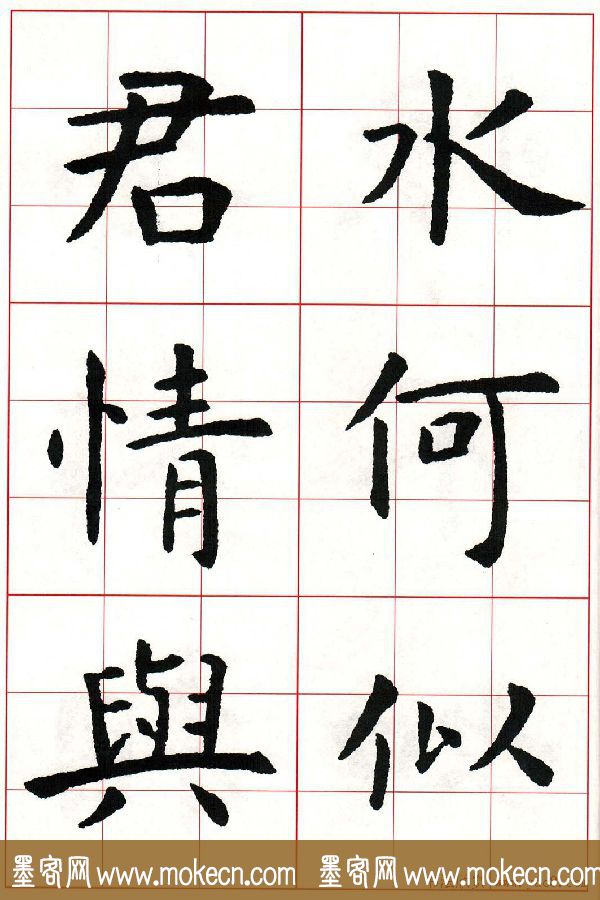 水何似
君情與
墨客网 www.mokecn.com 墨客网 www.mokecn.com